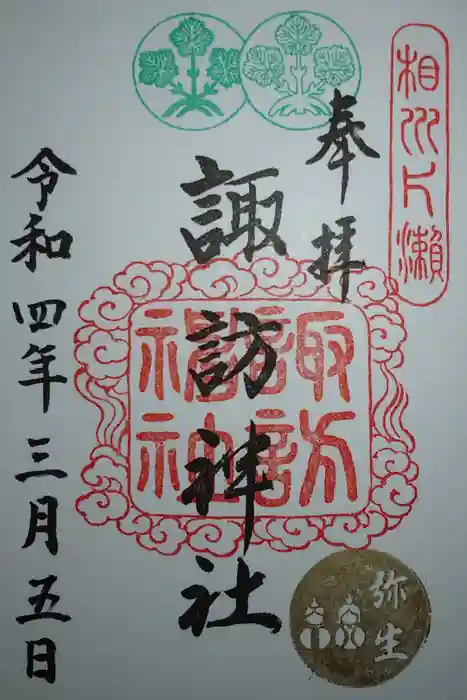 相州片瀬
奉拝
諏訪神社
諏訪
神社
令和四年三月五日
弥生